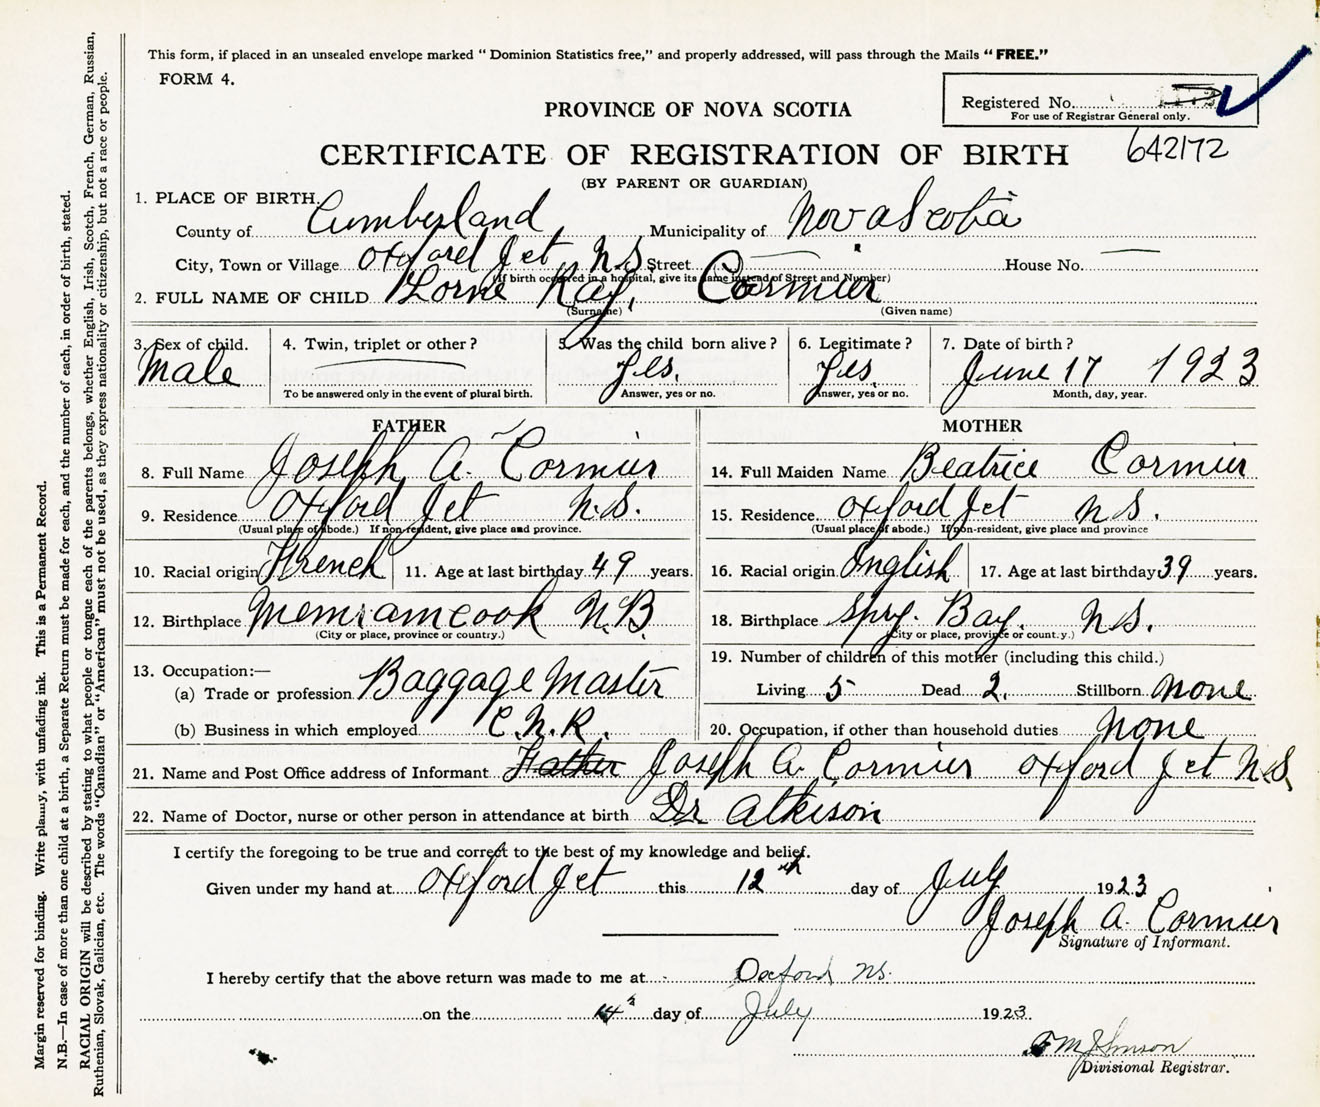 This form, if placed in an unsealed envelope marked " Dominion Statistics free," and properly addressed, will pass through the Mails " FREE."
FORM 4.
Registered No.
For use of Registrar General only.
PROVINCE OF NOVA SCOTIA
642172
CERTIFICATE OF REGISTRATION OF BIRTH
(BY PARENT OR GUARDIAN)
1. PLACE OF BIRTH.
County of Cumberland Municipality of Nova Scotia
City, Town or Village Oxford Jct N.S. Street — House No. —
(If birth occurred in a hospital, give its name instead of Street and Number)
2. FULL NAME OF CHILD Lorne Ray, Cormier
(Surname) (Given name)
3. Sex of child. Male
4. Twin, triplet or other ? —
To be answered only in the event of plural birth.
5. Was the child born alive ? Yes.
Answer, yes or no.
6. Legitimate ? Yes
Answer, yes or no.
7. Date of birth ? June 17 1923
Month, day, year.
FATHER
8. Full Name Joseph A. Cormier
9. Residence Oxford Jct N.S.
(Usual place of abode.) If non-resident, give place and province.
10. Racial origin French 11. Age at last birthday 49 years.
12. Birthplace Memramcook N.B.
(City or place, province or country.)
13. Occupation:—
(a) Trade or profession Baggage Master
(b) Business in which employed C.N.R.
MOTHER
14. Full Maiden Name Beatrice Cormier
15. Residence Oxford Jct N.S.
(Usual place of abode.) If non-resident, give place and province
16. Racial origin English 17. Age at last birthday 39 years.
18. Birthplace Spry. Bay. N.S.
(City or place, province or country.)
19. Number of children of this mother (including this child.)
Living 5 Dead 2. Stillborn none
20. Occupation, if other than household duties None
21. Name and Post Office address of Informant Father Joseph A. Cormier Oxford Jct N.S.
22. Name of Doctor, nurse or other person in attendance at birth Dr. Atkison
I certify the foregoing to be true and correct to the best of my knowledge and belief.
Given under my hand at Oxford Jct this 12th day of July 1923
Joseph A. Cormier
Signature of Informant.
I hereby certify that the above return was made to me at Oxford NS.
on the 14th day of July 1923.
Johnson
Divisional Registrar.
Margin reserved for binding. Write plainly, with unfading ink. This is a Permanent Record.
N.B.—In case of more than one child at a birth, a Separate Return must be made for each, and the number of each, in order of birth, stated.
RACIAL ORIGIN will be described by stating to what people or tongue each of the parents belongs, whether English, Irish, Scotch, French, German, Russian,
Ruthenian, Slovak, Galician, etc. The words "Canadian" or "American" must not be used, as they express nationality or citizenship, but not a race or people.